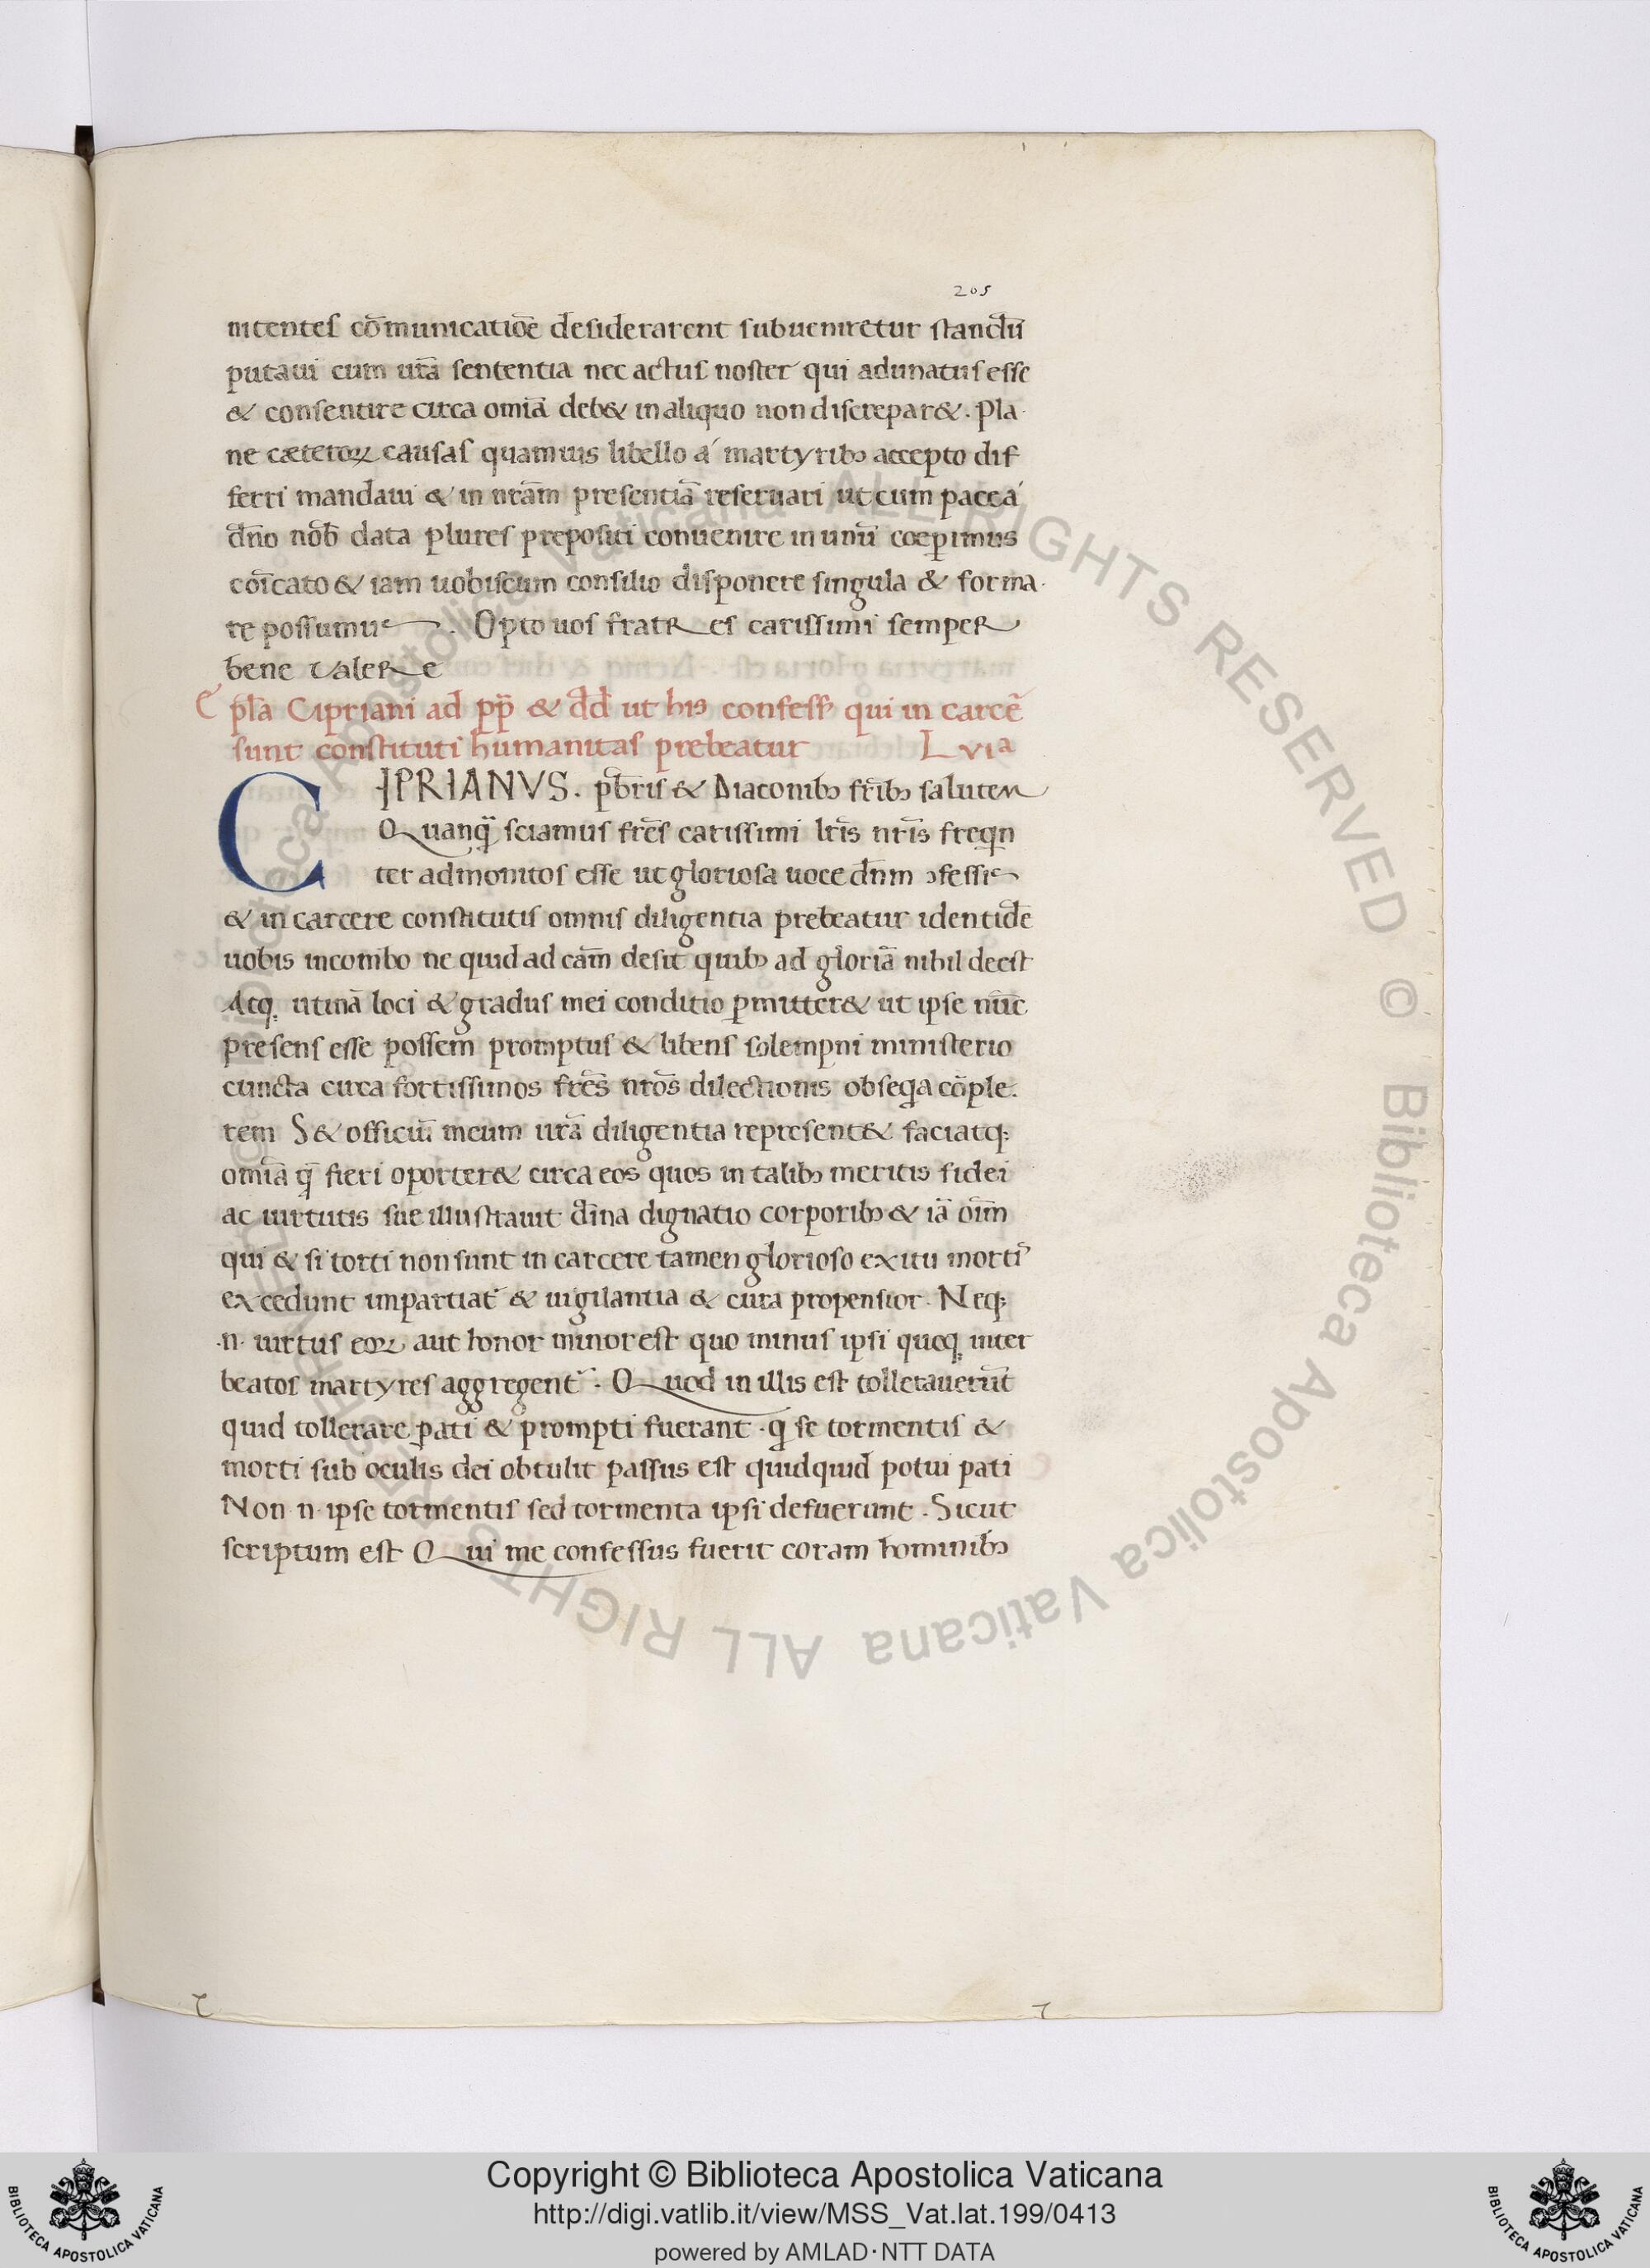 205
nitentes cōmunicatiōe desiderarent subueniretur standū
putaui cum urā sententia nec actus noster qui adunatus esse
& consentire circa omīa deb& in aliquo non discrepar&. Pla
ne cæteroꝝ causas quamuis libello á martyribꝫ accepto dif
ferri mandaui & in nrām presentiā reseruari ut cum pace á
dn̄o nōb data plures prepositi conuenire in unū coeperimus
cōīcato & iam uobiscum consilio disponere singula & forma
re possumus. Opto uos fratres carissimi semper
bene valere
Epl̄a Cipriani ad pp̄ & dd̄ ut his confess̄ qui in carcē
sunt constituti humanitas prebeatur L vi a
CIPRIANVS. pb̄ris & Diaconibꝫ fr̄ibꝫ salutem
Quanq̄ sciamus frēs carissimi lr̄is nr̄is freqn
ter admonitos esse ut gloriosa uoce dn̄m ɔfessis
& in carcere constitutis omnis diligentia prebeatur identidē
uobis incombo ne quid ad cām desit quibꝫ ad gloriā nihil deest
Atq; utinā loci & gradus mei conditio ꝑmitter& ut ipse nūc
presens esse possem promptus & libens solempni ministerio
cuncta circa fortissimos frēs nrōs dilectionis obseqa cōple
tem S& officiū meum urā diligentia represent& faciatq;
omīa q̄ fieri oporter& circa eos quos in talibꝫ meritis fidei
ac uirtutis sue illustrauit diīna dignatio corporibꝫ & iā oīm
qui & si torti non sunt in carcere tamen glorioso exitu morti᾽
excedunt impartiat᾽ & uigilantia & cura propensior. Neq;
.n. uirtus eoꝝ aut honor minor est quo minus ipsi quoq; inter
beatos martyres aggregent᾽. Quod in illis est tolleraverūt
quid tollerare pati & prompti fuerant. q se tormentis &
morti sub oculis dei obtulit passus est quidquid potui pati
Non .n. ipse tormentis sed tormenta ipsi defuerunt. Sicut
scriptum est Qui me confessus fuerit coram hominibꝫ
Copyright © Biblioteca Apostolica Vaticana
http://digi.vatlib.it/view/MSS_Vat.lat.199/0413
powered by AMLAD·NTT DATA